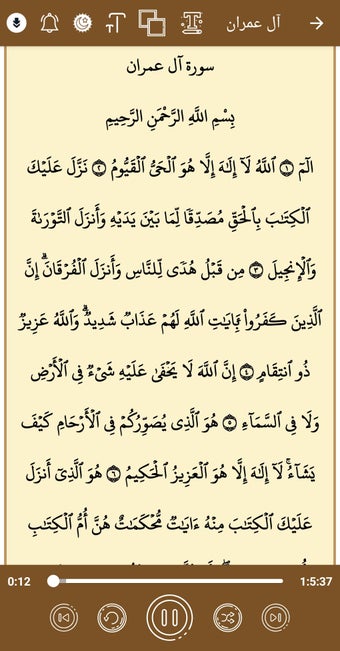 آل عمران
سورة آل عمران
بِسْمِ اللَّهِ الرَّحْمَنِ الرَّحِيمِ
الٓمٓ ١ ٱللَّهُ لَآ إِلَٰهَ إِلَّا هُوَ ٱلْحَىُّ ٱلْقَيُّومُ ٢ نَزَّلَ عَلَيْكَ
ٱلْكِتَٰبَ بِٱلْحَقِّ مُصَدِّقًا لِّمَا بَيْنَ يَدَيْهِ وَأَنزَلَ ٱلتَّوْرَىٰةَ
وَٱلْإِنجِيلَ ٣ مِن قَبْلُ هُدًى لِّلنَّاسِ وَأَنزَلَ ٱلْفُرْقَانَ ۗ إِنَّ
ٱلَّذِينَ كَفَرُوا۟ بِـَٔايَٰتِ ٱللَّهِ لَهُمْ عَذَابٌ شَدِيدٌ ۗ وَٱللَّهُ عَزِيزٌ
ذُو ٱنتِقَامٍ ٤ إِنَّ ٱللَّهَ لَا يَخْفَىٰ عَلَيْهِ شَىْءٌ فِى ٱلْأَرْضِ
وَلَا فِى ٱلسَّمَآءِ ٥ هُوَ ٱلَّذِى يُصَوِّرُكُمْ فِى ٱلْأَرْحَامِ كَيْفَ
يَشَآءُ ۚ لَآ إِلَٰهَ إِلَّا هُوَ ٱلْعَزِيزُ ٱلْحَكِيمُ ٦ هُوَ ٱلَّذِىٓ أَنزَلَ
عَلَيْكَ ٱلْكِتَٰبَ مِنْهُ ءَايَٰتٌ مُّحْكَمَٰتٌ هُنَّ أُمُّ ٱلْكِتَٰبِ
0:12 1:5:37